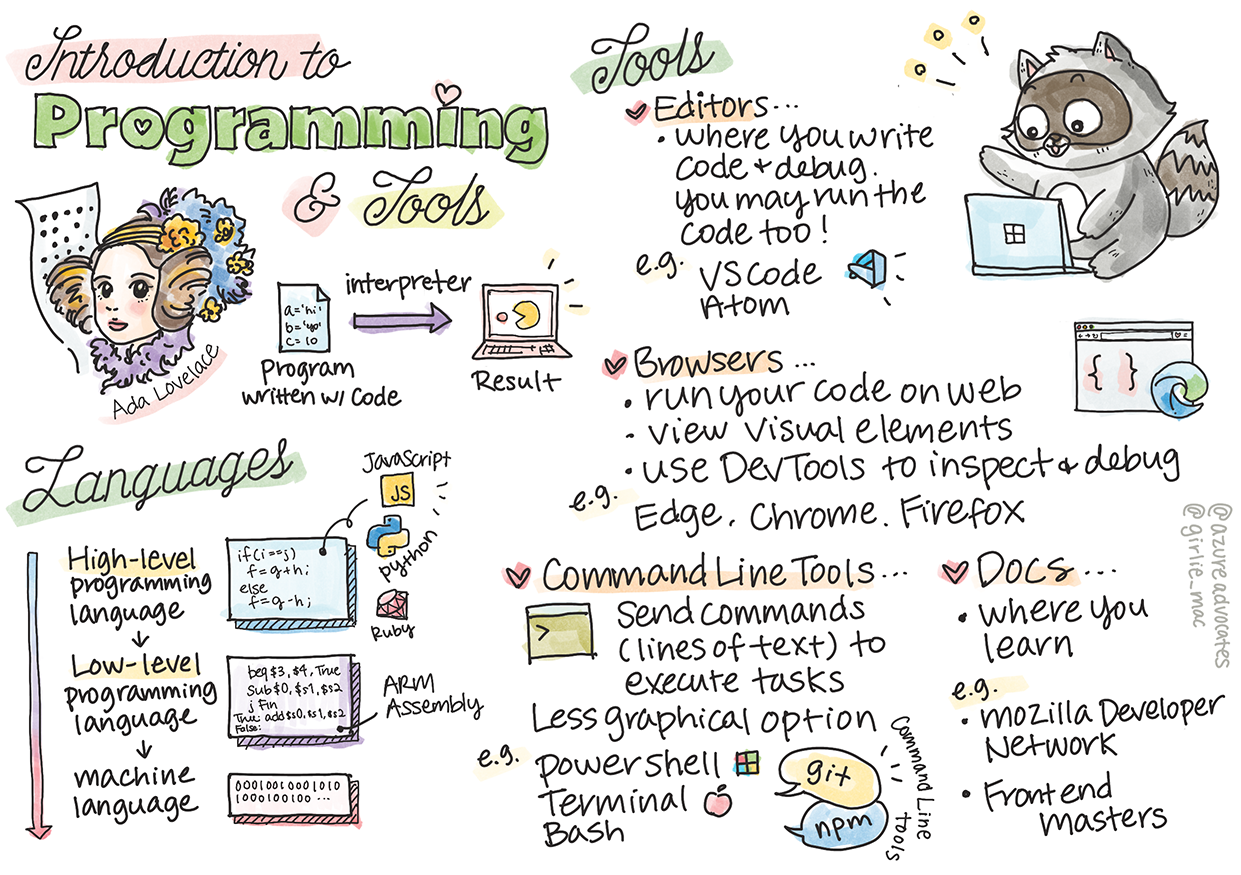 Introduction to
Programming
& Tools
Ada Lovelace
a='hi'
b='yo'
c=10
Program
written w/ Code
interpreter
Result
Languages
High-level
programming
language
Low-level
programming
language
machine
language
if(i==j)
f=g+h;
else
f=g-h;
JavaScript
JS
python
Ruby
beq $3, $4, True
Sub $0, $s1, $s2
j Fin
True: add $s0, $s1, $s2
False:
ARM
Assembly
00010010001010
1000100100 ...
Tools
Editors...
• where you write
code & debug.
you may run the
code too!
e.g.
VS Code
Atom
Browsers ...
• run your code on web
• view visual elements
• use DevTools to inspect & debug
e.g.
Edge, Chrome. Firefox
{ }
Command Line Tools ...
>
Send commands
(lines of text) to
execute tasks
Less graphical option
e.g.
powershell
Terminal
Bash
git
npm
Command Line
tools
Docs ...
• where you
learn
e.g.
• mozilla Developer
Network
• Frontend
masters
@azureadvocates
@girlie_mac